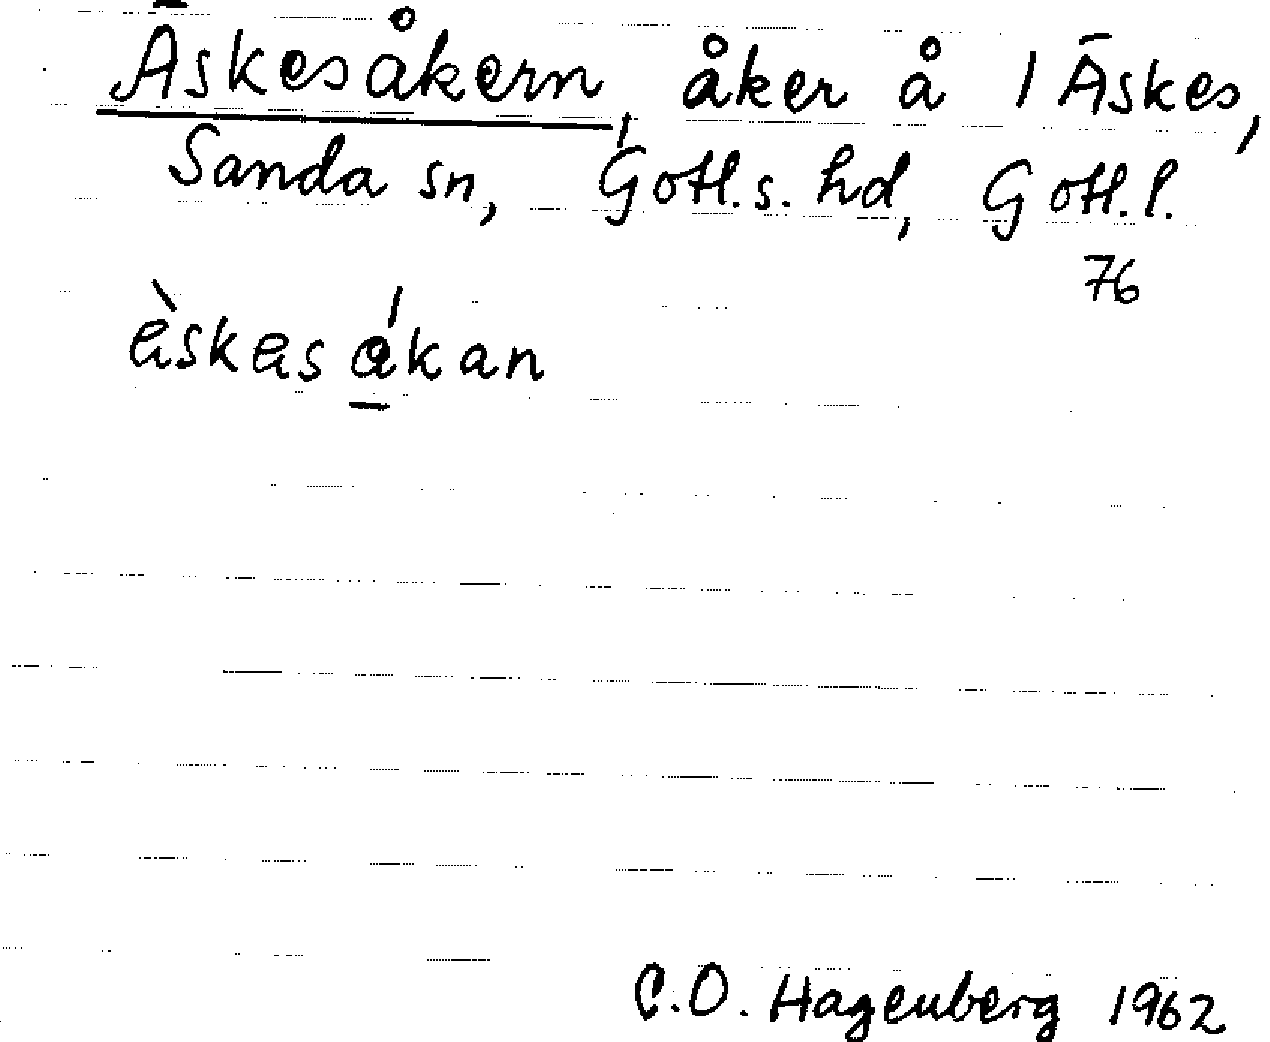 Äskesåkern, åker å 1 Äskes,
Sanda sn, Gotl.s. hd, Gotl.l.
76
äskas åkan
C.O. Hagenberg 1962